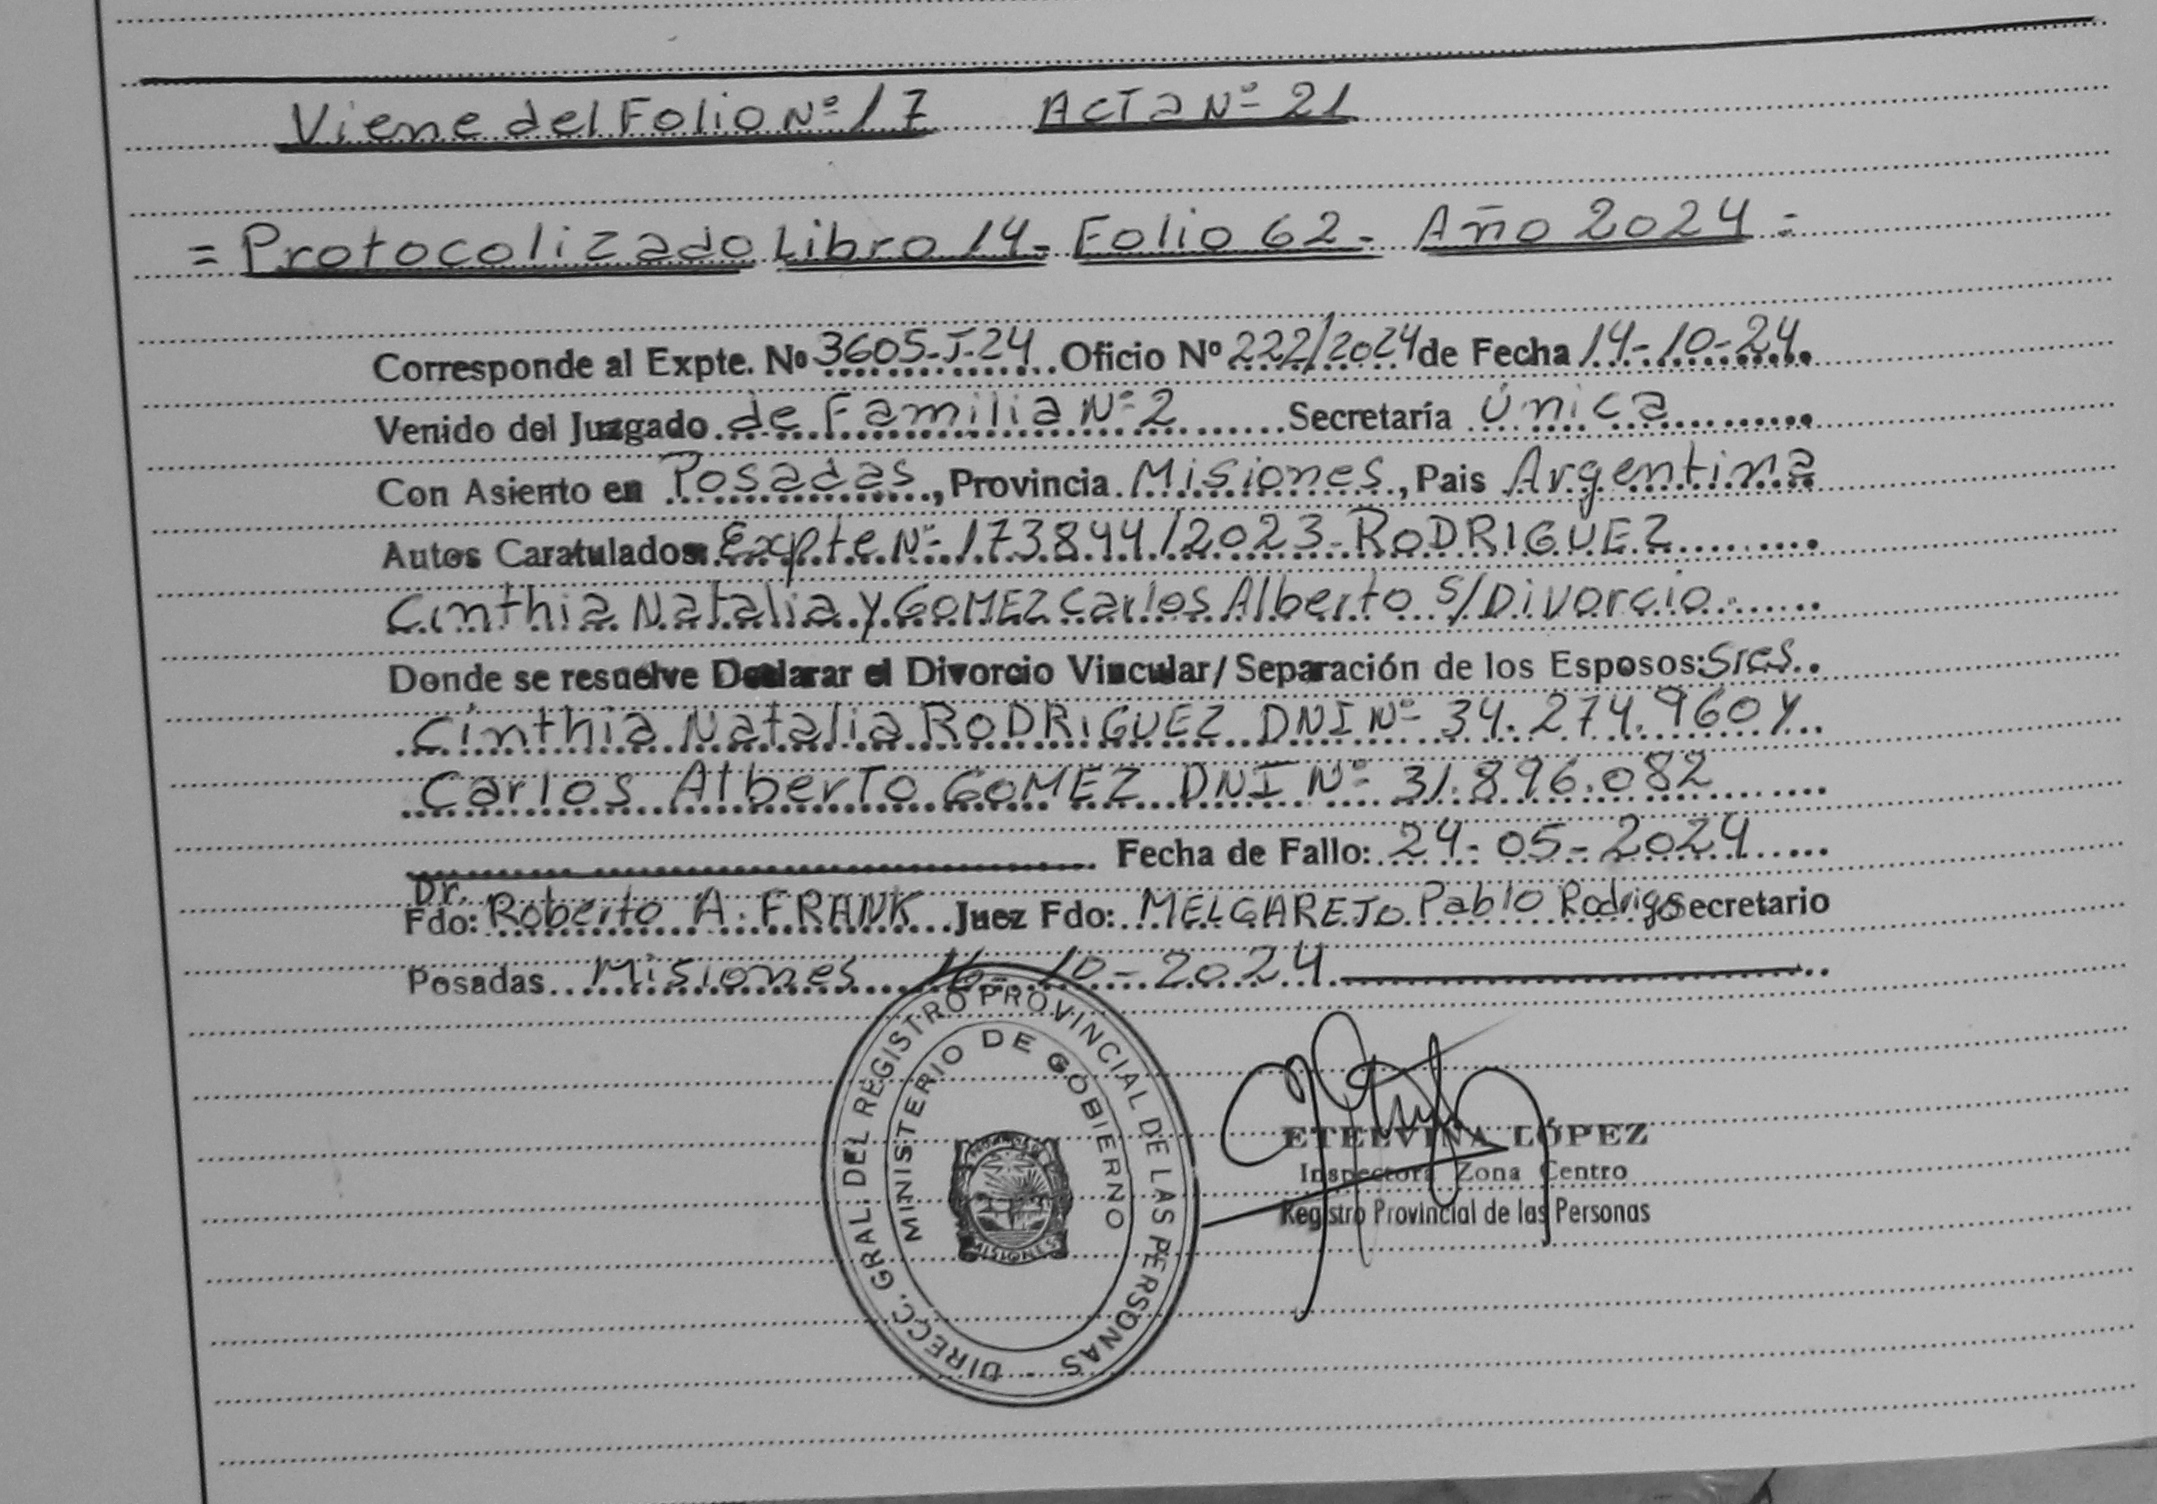 Viene del Folio Nº 17 Acta Nº 21
= Protocolizado Libro 14- Folio 62- Año 2024 =
Corresponde al Expte. Nº 3605-J-24 Oficio Nº 222/2024 de Fecha 14-10-24
Venido del Juzgado de Familia Nº 2 Secretaría Única
Con Asiento en Posadas, Provincia Misiones, Pais Argentina
Autos Caratulados: Expte Nº 173844/2023-RODRIGUEZ
Cinthia Natalia y GOMEZ Carlos Alberto s/Divorcio
Donde se resuelve Declarar el Divorcio Vincular/Separación de los Esposos: Sres.
Cinthia Natalia RODRIGUEZ DNI Nº 34.274.960 y
Carlos Alberto GOMEZ DNI Nº 31.896.082
Fecha de Fallo: 24-05-2024
Dr.
Fdo: Roberto A. FRANK Juez Fdo: MELGAREJO Pablo Rodrigo Secretario
Posadas Misiones 16-10-2024
DIRECC. GRAL. DEL REGISTRO PROVINCIAL DE LAS PERSONAS
MINISTERIO DE GOBIERNO
MISIONES
ETELVINA LÓPEZ
Inspectora Zona Centro
Registro Provincial de las Personas